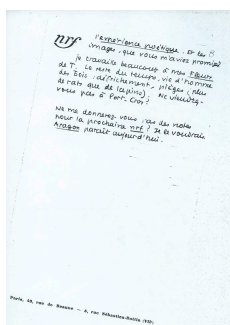 nrf
l'expérience poétique. Et les 8
images, que vous m'aviez promises
je travaille beaucoup à mes Fleurs
de T. Le reste du temps, vie d'homme
des bois : défrichement, pièges (plus
de rats que de lapins). Ne viendrez-
vous pas à Port-Cros ?
Ne me donnerez-vous pas des notes
pour la prochaine nrf ? Je le voudrais
Aragon paraît aujourd'hui.
Paris, 43, rue de Beaune — 5, rue Sébastien-Bottin (VIIe)